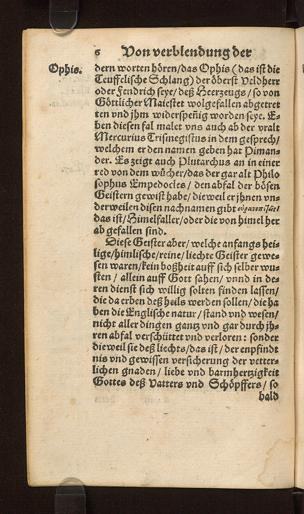 6 Von verblendung der
Ophis.
dern worten hören/das Ophis (das ist die
Teuffelische Schlang) der öberst Veldherr
oder Fendrich seye/deß Heerzeugs/so von
Göttlicher Maiestet wolgefallen abgetret
ten vnd jhm widerspeñig worden seye. E-
ben diesen fal malet vns auch ab der vralt
Mercurius Trismegistus in dem gesprech/
welchem er den namen geben hat Piman-
der. Es zeigt auch Plutarchus an in einer
red von dem wůcher/das der gar alt Philo
sophus Empedocles/den abfal der bösen
Geistern gewist habe/dieweil er jhnen vn-
derweilen disen nachnamen gibt
das ist/Himelfaller/oder die von himel her
ab gefallen sind.
Diese Geister aber/welche anfangs hei-
lige/himlische/reine/liechte Geister gewe-
sen waren/kein boßheit auff sich selber wu-
sten/allein auff Gott sahen/vnnd in de-
ren dienst sich willig solten finden lassen/
die da erben deß heils werden sollen/die ha
ben die Englische natur/stand vnd wesen/
nicht aller dingen gantz vnd gar durch jh-
ren abfal verschüttet vnd verloren: sonder
dieweil sie deß liechts/das ist/der enpfindt
nis vnd gewissen versicherung der vetter-
lichen gnaden/liebe vnd barmhertzigkeit
Gottes deß Vatters vnd Schöpffers/so
bald